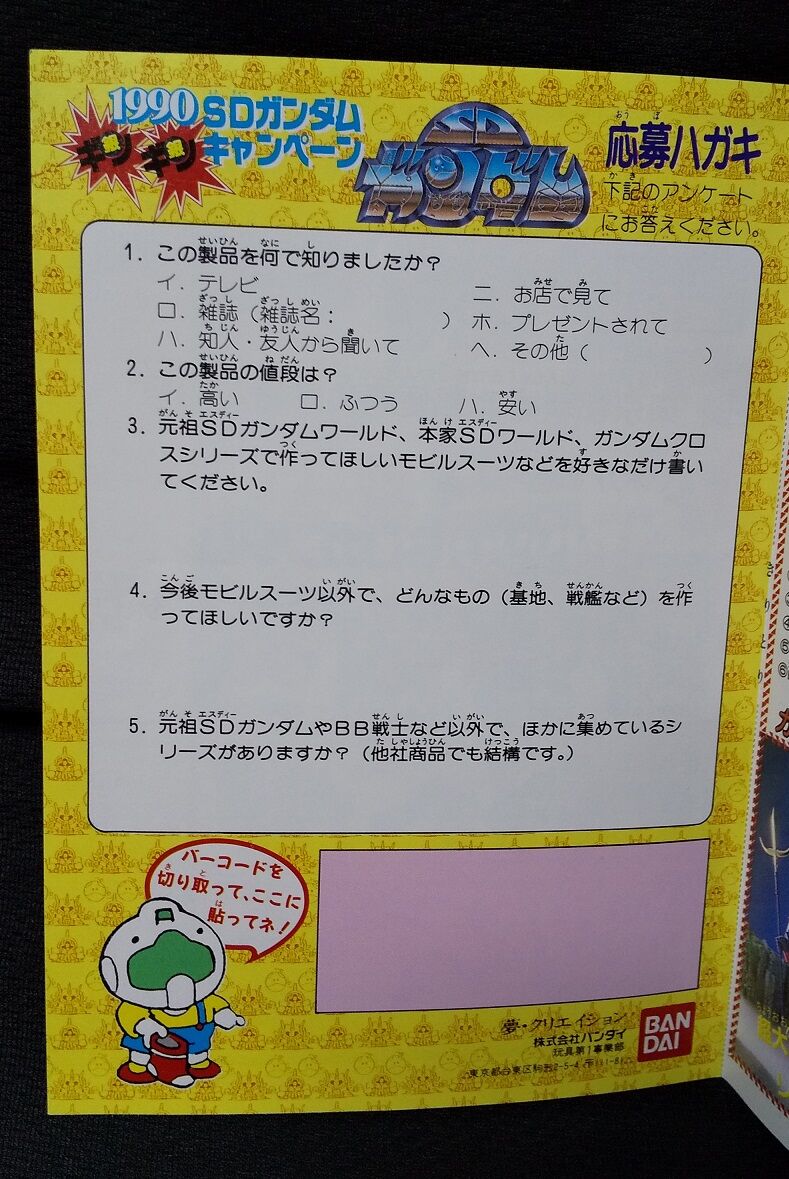 1990 SDガンダム
ギンギン キャンペーン
SD
ガンダム
応募ハガキ
下記のアンケート
にお答えください。
1. この製品を何で知りましたか？
イ. テレビ
ニ. お店で見て
ロ. 雑誌（雑誌名：　　　）
ホ. プレゼントされて
ハ. 知人・友人から聞いて
ヘ. その他（　　　）
2. この製品の値段は？
イ. 高い　ロ. ふつう　ハ. 安い
3. 元祖SDガンダムワールド、本家SDワールド、ガンダムクロ
スシリーズで作ってほしいモビルスーツなどを好きなだけ書い
てください。
4. 今後モビルスーツ以外で、どんなもの（基地、戦艦など）を作
ってほしいですか？
5. 元祖SDガンダムやBB戦士など以外で、ほかに集めているシ
リーズがありますか？（他社商品でも結構です。）
バーコードを
切り取って、ここに
貼ってネ！
夢・クリエイション
株式会社バンダイ
玩具第1事業部
東京都台東区駒形2-5-4
BAN
DAI
きりとり